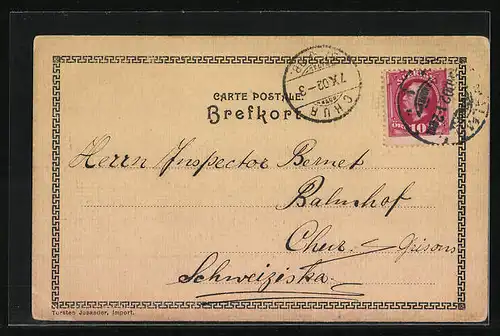 CARTE POSTALE.
Brefkort
CHUR
7.X.02-3
SVERIGE
10
ÖRE
Herrn Inspector Bernet
Bahnhof
Chur. Grisons
Schweiziska.
Torsten Josseder, Import.